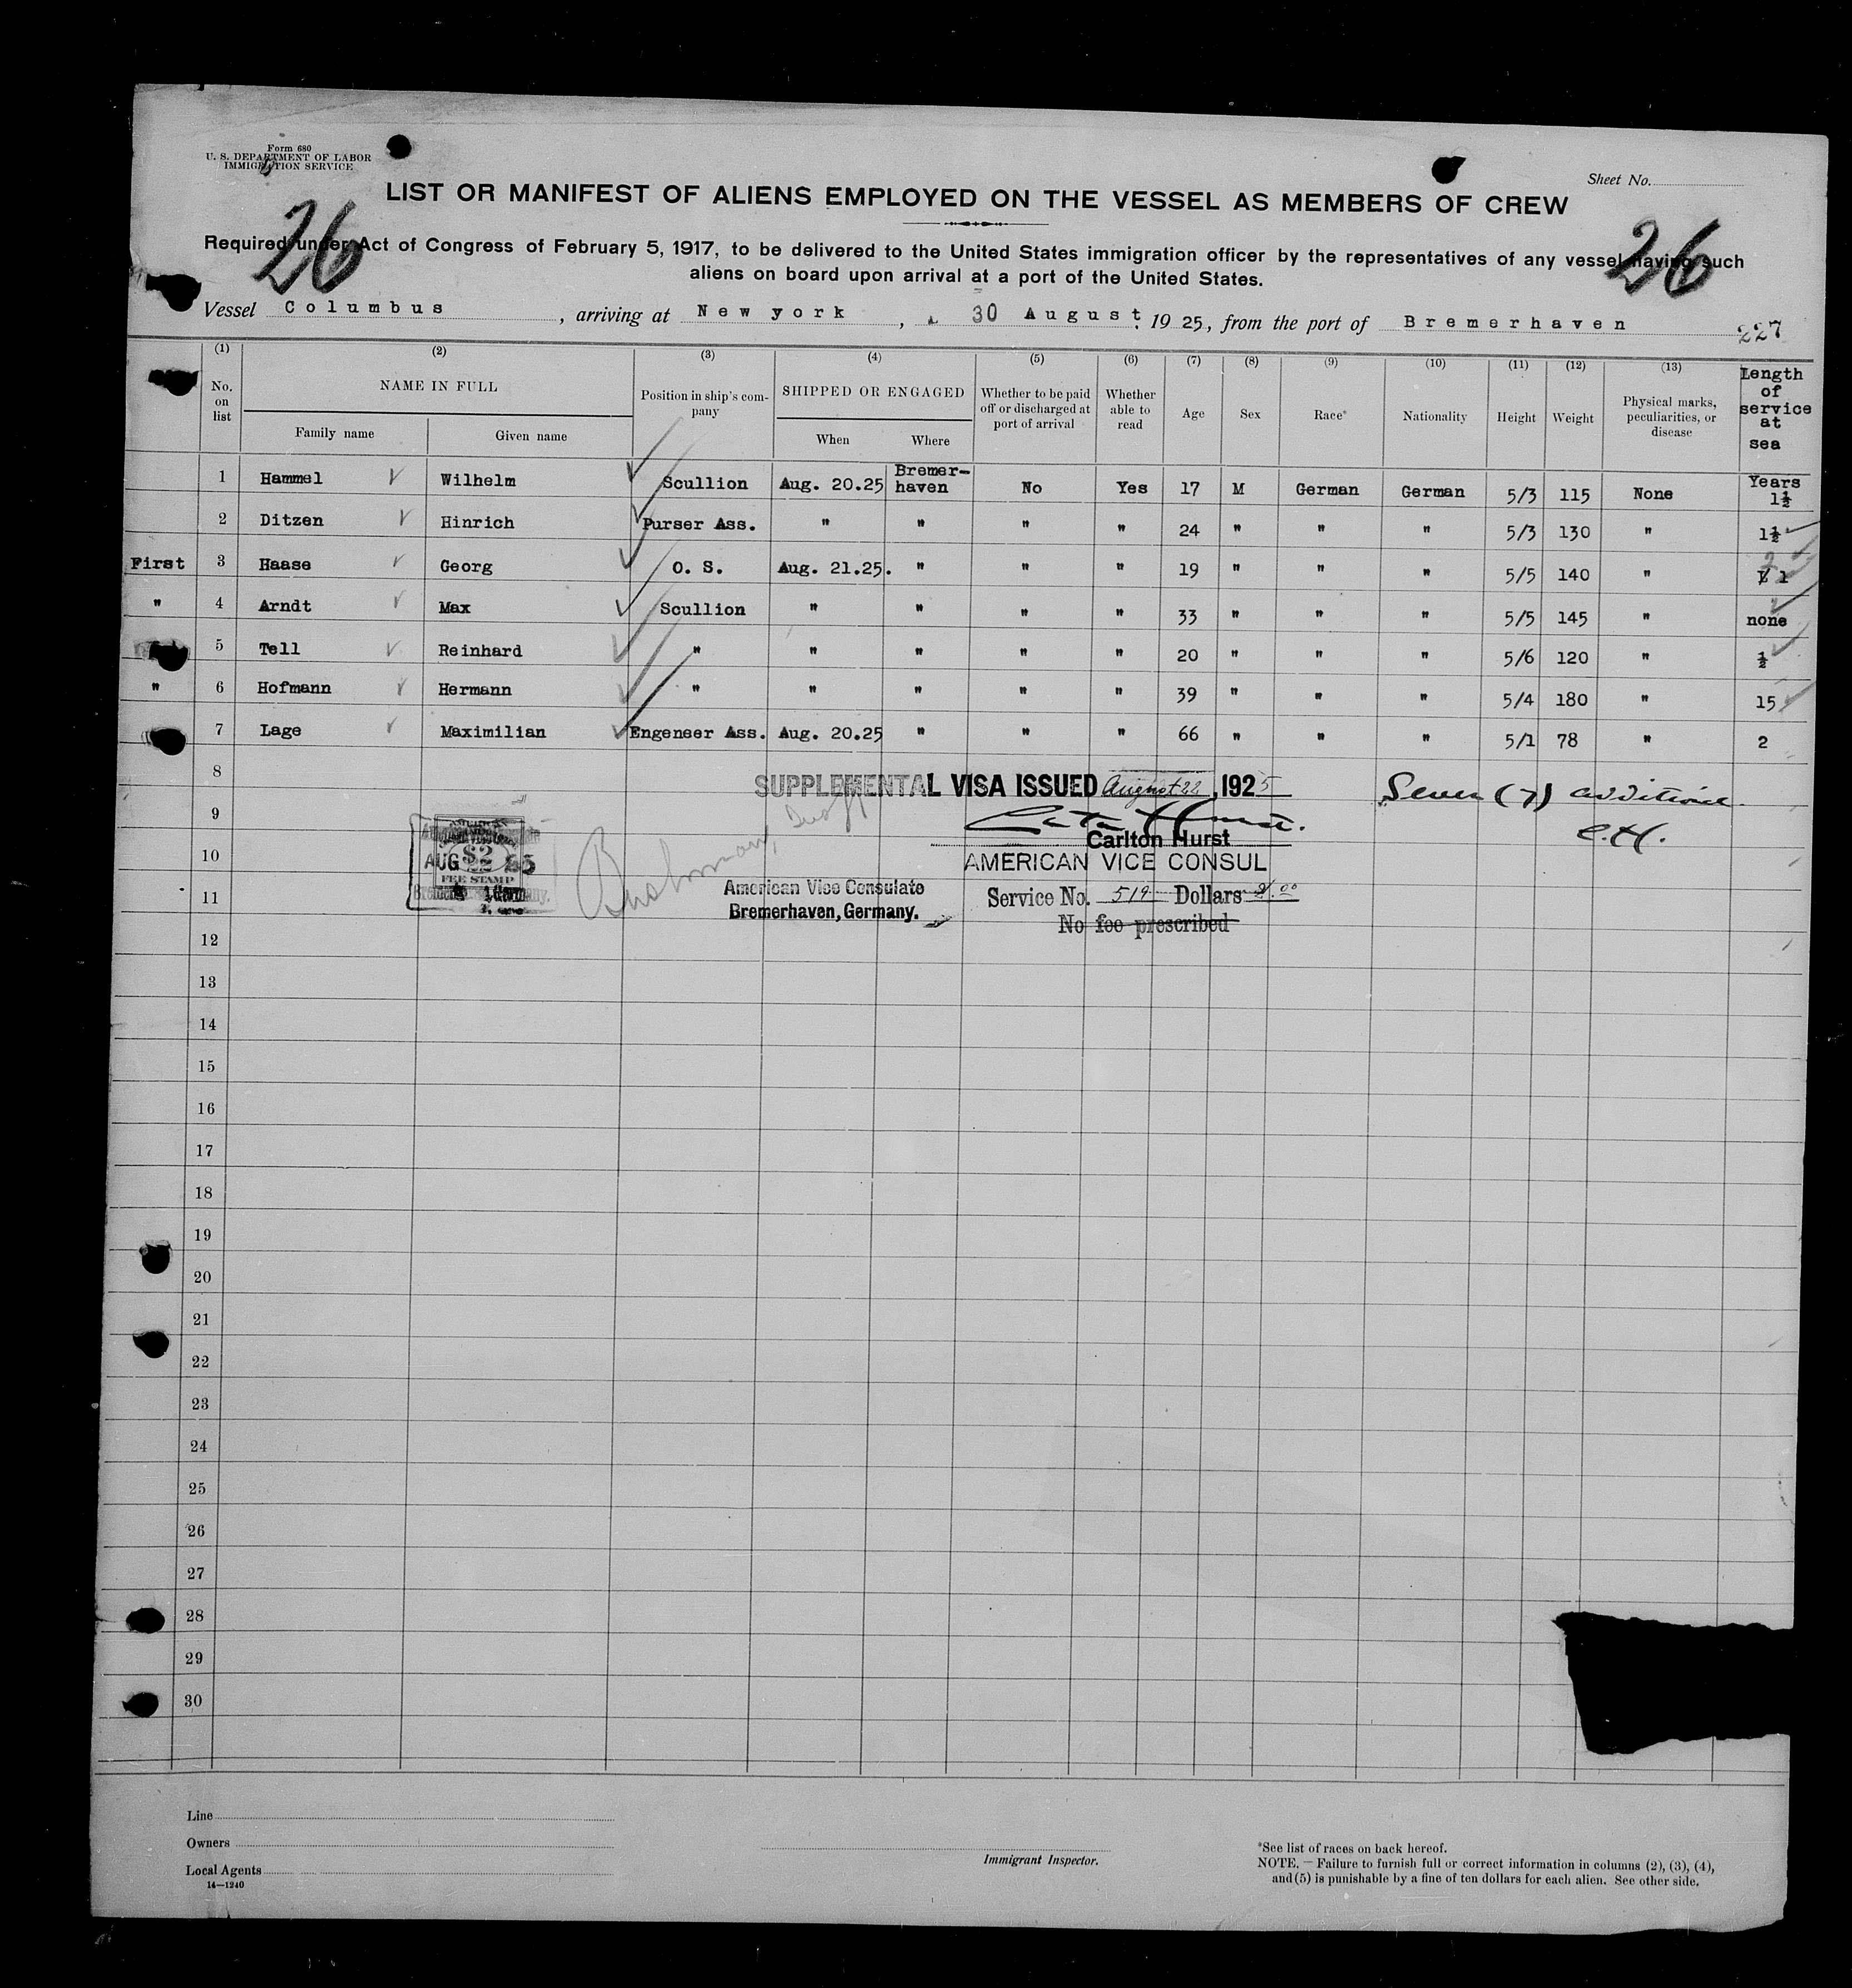 Form 680
U. S. DEPARTMENT OF LABOR
IMMIGRATION SERVICE
Sheet No.
LIST OR MANIFEST OF ALIENS EMPLOYED ON THE VESSEL AS MEMBERS OF CREW
26 26
Required under Act of Congress of February 5, 1917, to be delivered to the United States immigration officer by the representatives of any vessel having such
aliens on board upon arrival at a port of the United States.
Vessel Columbus, arriving at New york, 30 August, 1925, from the port of Bremerhaven 227
(1) (2) (3) (4) (5) (6) (7) (8) (9) (10) (11) (12) (13)
No. on list NAME IN FULL Family name Given name Position in ship's company SHIPPED OR ENGAGED When Where Whether to be paid off or discharged at port of arrival Whether able to read Age Sex Race* Nationality Height Weight Physical marks, peculiarities, or disease Length of service at sea
1 Hammel Wilhelm Scullion Aug. 20.25 Bremer-haven No Yes 17 M German German 5/3 115 None Years 1½
2 Ditzen Hinrich Purser Ass. " " " " 24 " " " 5/3 130 " 1½
First 3 Haase Georg O. S. Aug. 21.25. " " " 19 " " " 5/5 140 " 1 2
" 4 Arndt Max Scullion " " " " 33 " " " 5/5 145 " none
5 Tell Reinhard " " " " " 20 " " " 5/6 120 " ½
" 6 Hofmann Hermann " " " " " 39 " " " 5/4 180 " 15
7 Lage Maximilian Engeneer Ass. Aug. 20.25 " " " 66 " " " 5/1 78 " 2
8
SUPPLEMENTAL VISA ISSUED August 22, 1925
Seven (7) additional
9
C.H.
Carlton Hurst
10
AUG $2 25
AMERICAN VICE CONSUL
FEE STAMP
11
American Vice Consulate
Bremerhaven, Germany.
Service No. 519 Dollars 2.00
No fee prescribed
12
13
14
15
16
17
18
19
20
21
22
23
24
25
26
27
28
29
30
Line
Owners
Local Agents
14—1240
Immigrant Inspector.
*See list of races on back hereof.
NOTE.—Failure to furnish full or correct information in columns (2), (3), (4),
and (5) is punishable by a fine of ten dollars for each alien. See other side.